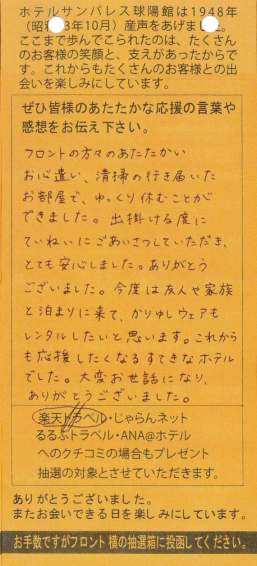 ホテルサンパレス球陽館は1948年
（昭　3年10月）産声をあげま　。
ここまで歩んでこられたのは、たくさん
のお客様の笑顔と、支えがあったからで
す。これからもたくさんのお客様との出
会いを楽しみにしています。
ぜひ皆様のあたたかな応援の言葉や
感想をお伝え下さい。
フロントの方々のあたたかい
お心遣い、清掃の行き届いた
お部屋で、ゆっくり休むことが
できました。出掛ける度に
ていねいにごあいさつしていただき、
とても安心しました。ありがとう
ございました。今度は友人や家族
と泊まりに来て、かりゆしウェアも
レンタルしたいと思います。これから
も応援したくなるすてきなホテル
でした。大変お世話になり、
ありがとうございました。
楽天トラベル・じゃらんネット
るるぶトラベル・ANA@ホテル
へのクチコミの場合もプレゼント
抽選の対象とさせていただきます。
ありがとうございました。
またお会いできる日を楽しみにしています。
お手数ですがフロント横の抽選箱に投函してください。